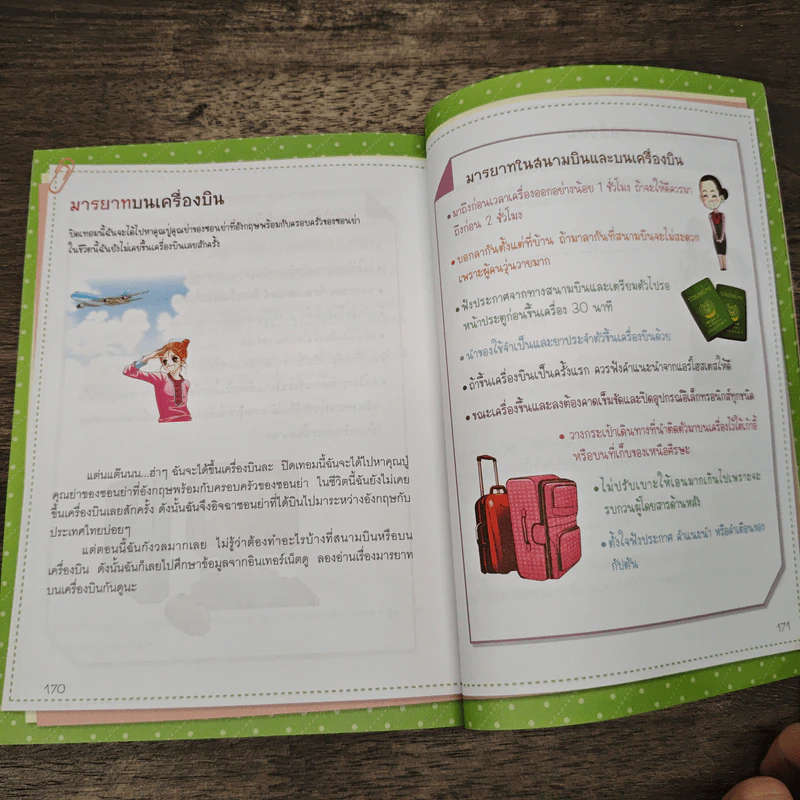 มารยาทบนเครื่องบิน
ปิดเทอมนี้ฉันจะได้ไปหาคุณปู่คุณย่าของซอนย่าที่อังกฤษพร้อมกับครอบครัวของซอนย่า
ในชีวิตนี้ฉันยังไม่เคยขึ้นเครื่องบินเลยสักครั้ง
แต่นแต๊นนน...ฮ่าๆ ฉันจะได้ขึ้นเครื่องบินละ ปิดเทอมนี้ฉันจะได้ไปหาคุณปู่
คุณย่าของซอนย่าที่อังกฤษพร้อมกับครอบครัวของซอนย่า ในชีวิตนี้ฉันยังไม่เคย
ขึ้นเครื่องบินเลยสักครั้ง ดังนั้นฉันจึงอิจฉาซอนย่าที่ได้บินไปมาระหว่างอังกฤษกับ
ประเทศไทยบ่อยๆ
แต่ตอนนี้ฉันกังวลมากเลย ไม่รู้ว่าต้องทำอะไรบ้างที่สนามบินหรือบน
เครื่องบิน ดังนั้นฉันก็เลยไปศึกษาข้อมูลจากอินเทอร์เน็ตดู ลองอ่านเรื่องมารยาท
บนเครื่องบินกันดูนะ
170
มารยาทในสนามบินและบนเครื่องบิน
• มาถึงก่อนเวลาเครื่องออกอย่างน้อย 1 ชั่วโมง ถ้าจะให้ดีควรมา
ถึงก่อน 2 ชั่วโมง
• บอกลากันตั้งแต่ที่บ้าน ถ้ามาลากันที่สนามบินจะไม่สะดวก
เพราะผู้คนวุ่นวายมาก
• ฟังประกาศจากทางสนามบินและเตรียมตัวไปรอ
หน้าประตูก่อนขึ้นเครื่อง 30 นาที
• นำของใช้จำเป็นและยาประจำตัวขึ้นเครื่องบินด้วย
• ถ้าขึ้นเครื่องบินเป็นครั้งแรก ควรฟังคำแนะนำจากแอร์โฮสเตสให้ดี
• ขณะเครื่องขึ้นและลงต้องคาดเข็มขัดและปิดอุปกรณ์อิเล็กทรอนิกส์ทุกชนิด
• วางกระเป๋าเดินทางที่นำติดตัวมาบนเครื่องไว้ใต้เก้าอี้
หรือบนที่เก็บของเหนือศีรษะ
• ไม่ปรับเบาะให้เอนมากเกินไปเพราะจะ
รบกวนผู้โดยสารด้านหลัง
• ตั้งใจฟังประกาศ คำแนะนำ หรือคำเตือนของ
กัปตัน
171